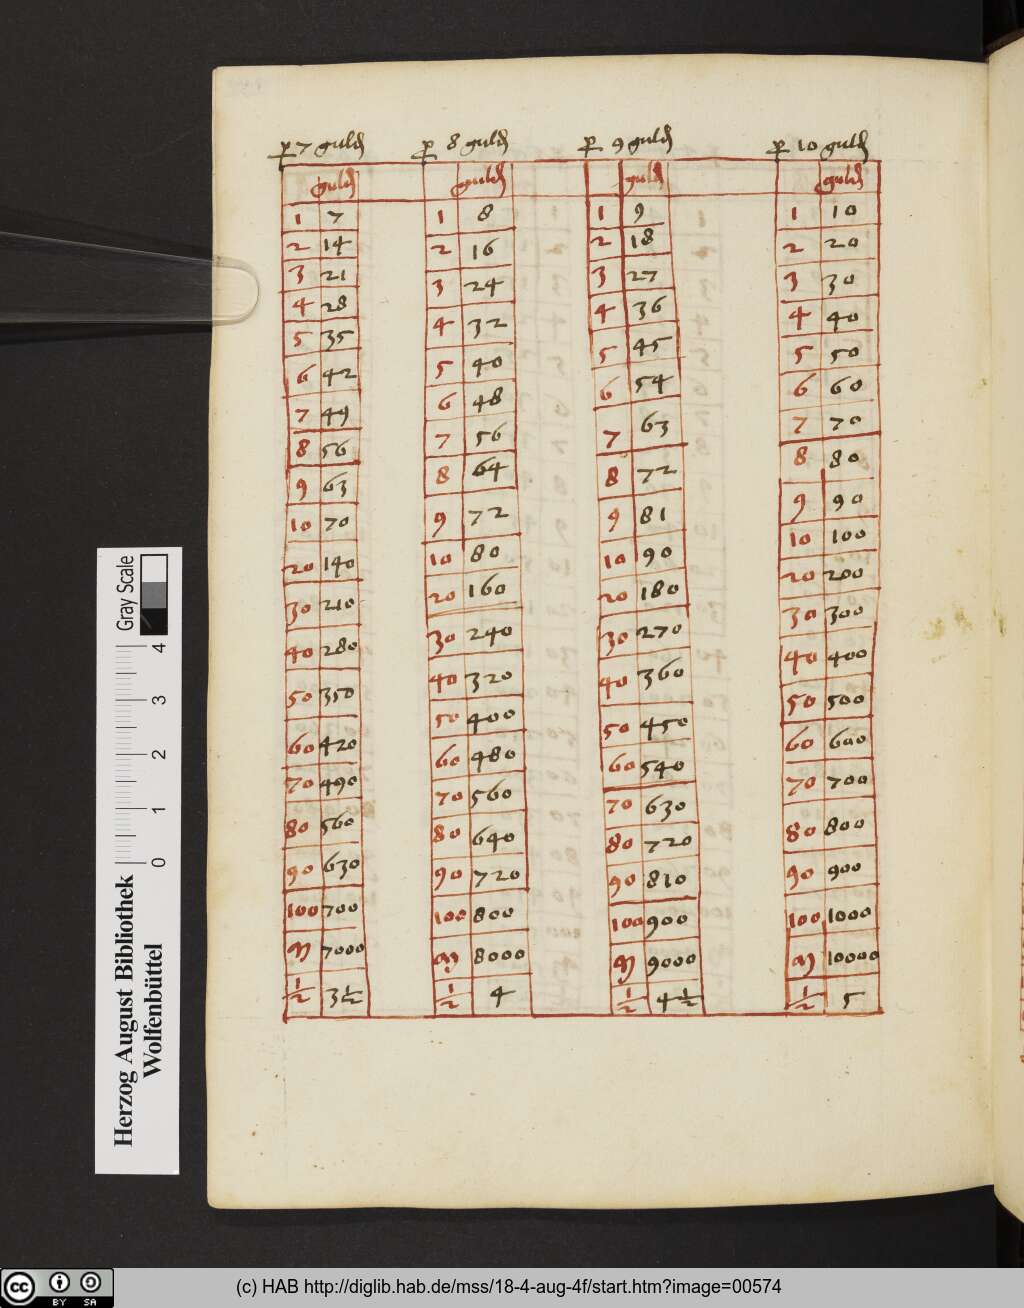 p 7 guld p 8 guld p 9 guld p 10 guld
guld guld guld guld
1 7 1 8 1 9 1 10
2 14 2 16 2 18 2 20
3 21 3 24 3 27 3 30
4 28 4 32 4 36 4 40
5 35 5 40 5 45 5 50
6 42 6 48 6 54 6 60
7 49 7 56 7 63 7 70
8 56 8 64 8 72 8 80
9 63 9 72 9 81 9 90
10 70 10 80 10 90 10 100
20 140 20 160 20 180 20 200
30 210 30 240 30 270 30 300
40 280 40 320 40 360 40 400
50 350 50 400 50 450 50 500
60 420 60 480 60 540 60 600
70 490 70 560 70 630 70 700
80 560 80 640 80 720 80 800
90 630 90 720 90 810 90 900
100 700 100 800 100 900 100 1000
M 7000 M 8000 M 9000 M 10000
1/2 3 1/2 1/2 4 1/2 4 1/2 1/2 5
Gray Scale
0 1 2 3 4
Herzog August Bibliothek
Wolfenbüttel
cc BY SA
(c) HAB http://diglib.hab.de/mss/18-4-aug-4f/start.htm?image=00574